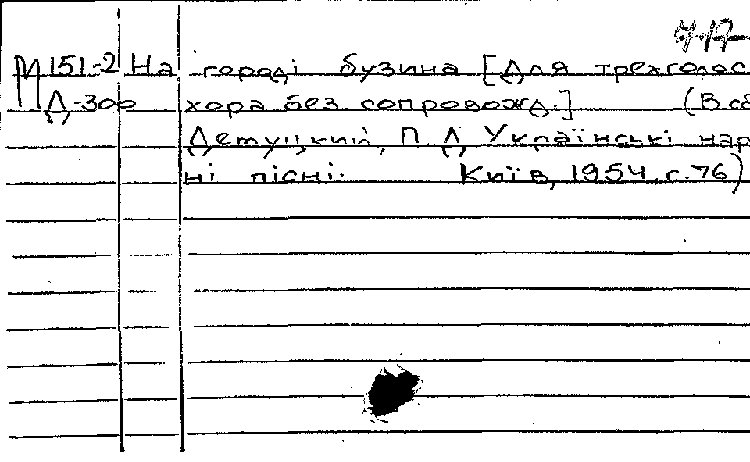 М151-2 На городі бузина [Для трехголос
Д-300 хора без сопровожд.] (В сб
П. Д. Українські нар
ні пісні. Київ, 1954 с. 76)